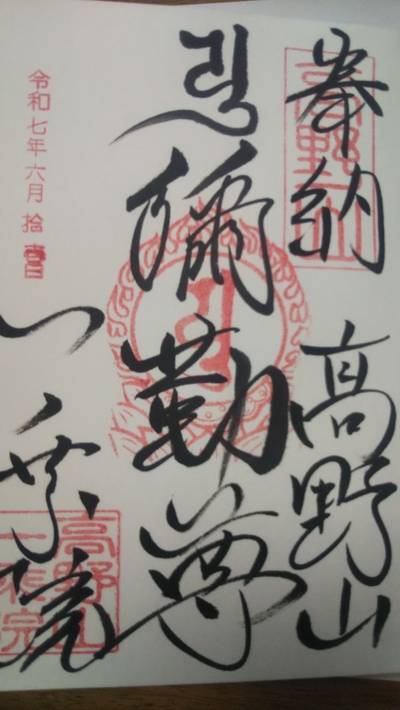 高野山
奉納 高野山
彌勒尊
令和七年六月拾
一乗院
高野山
一乗院